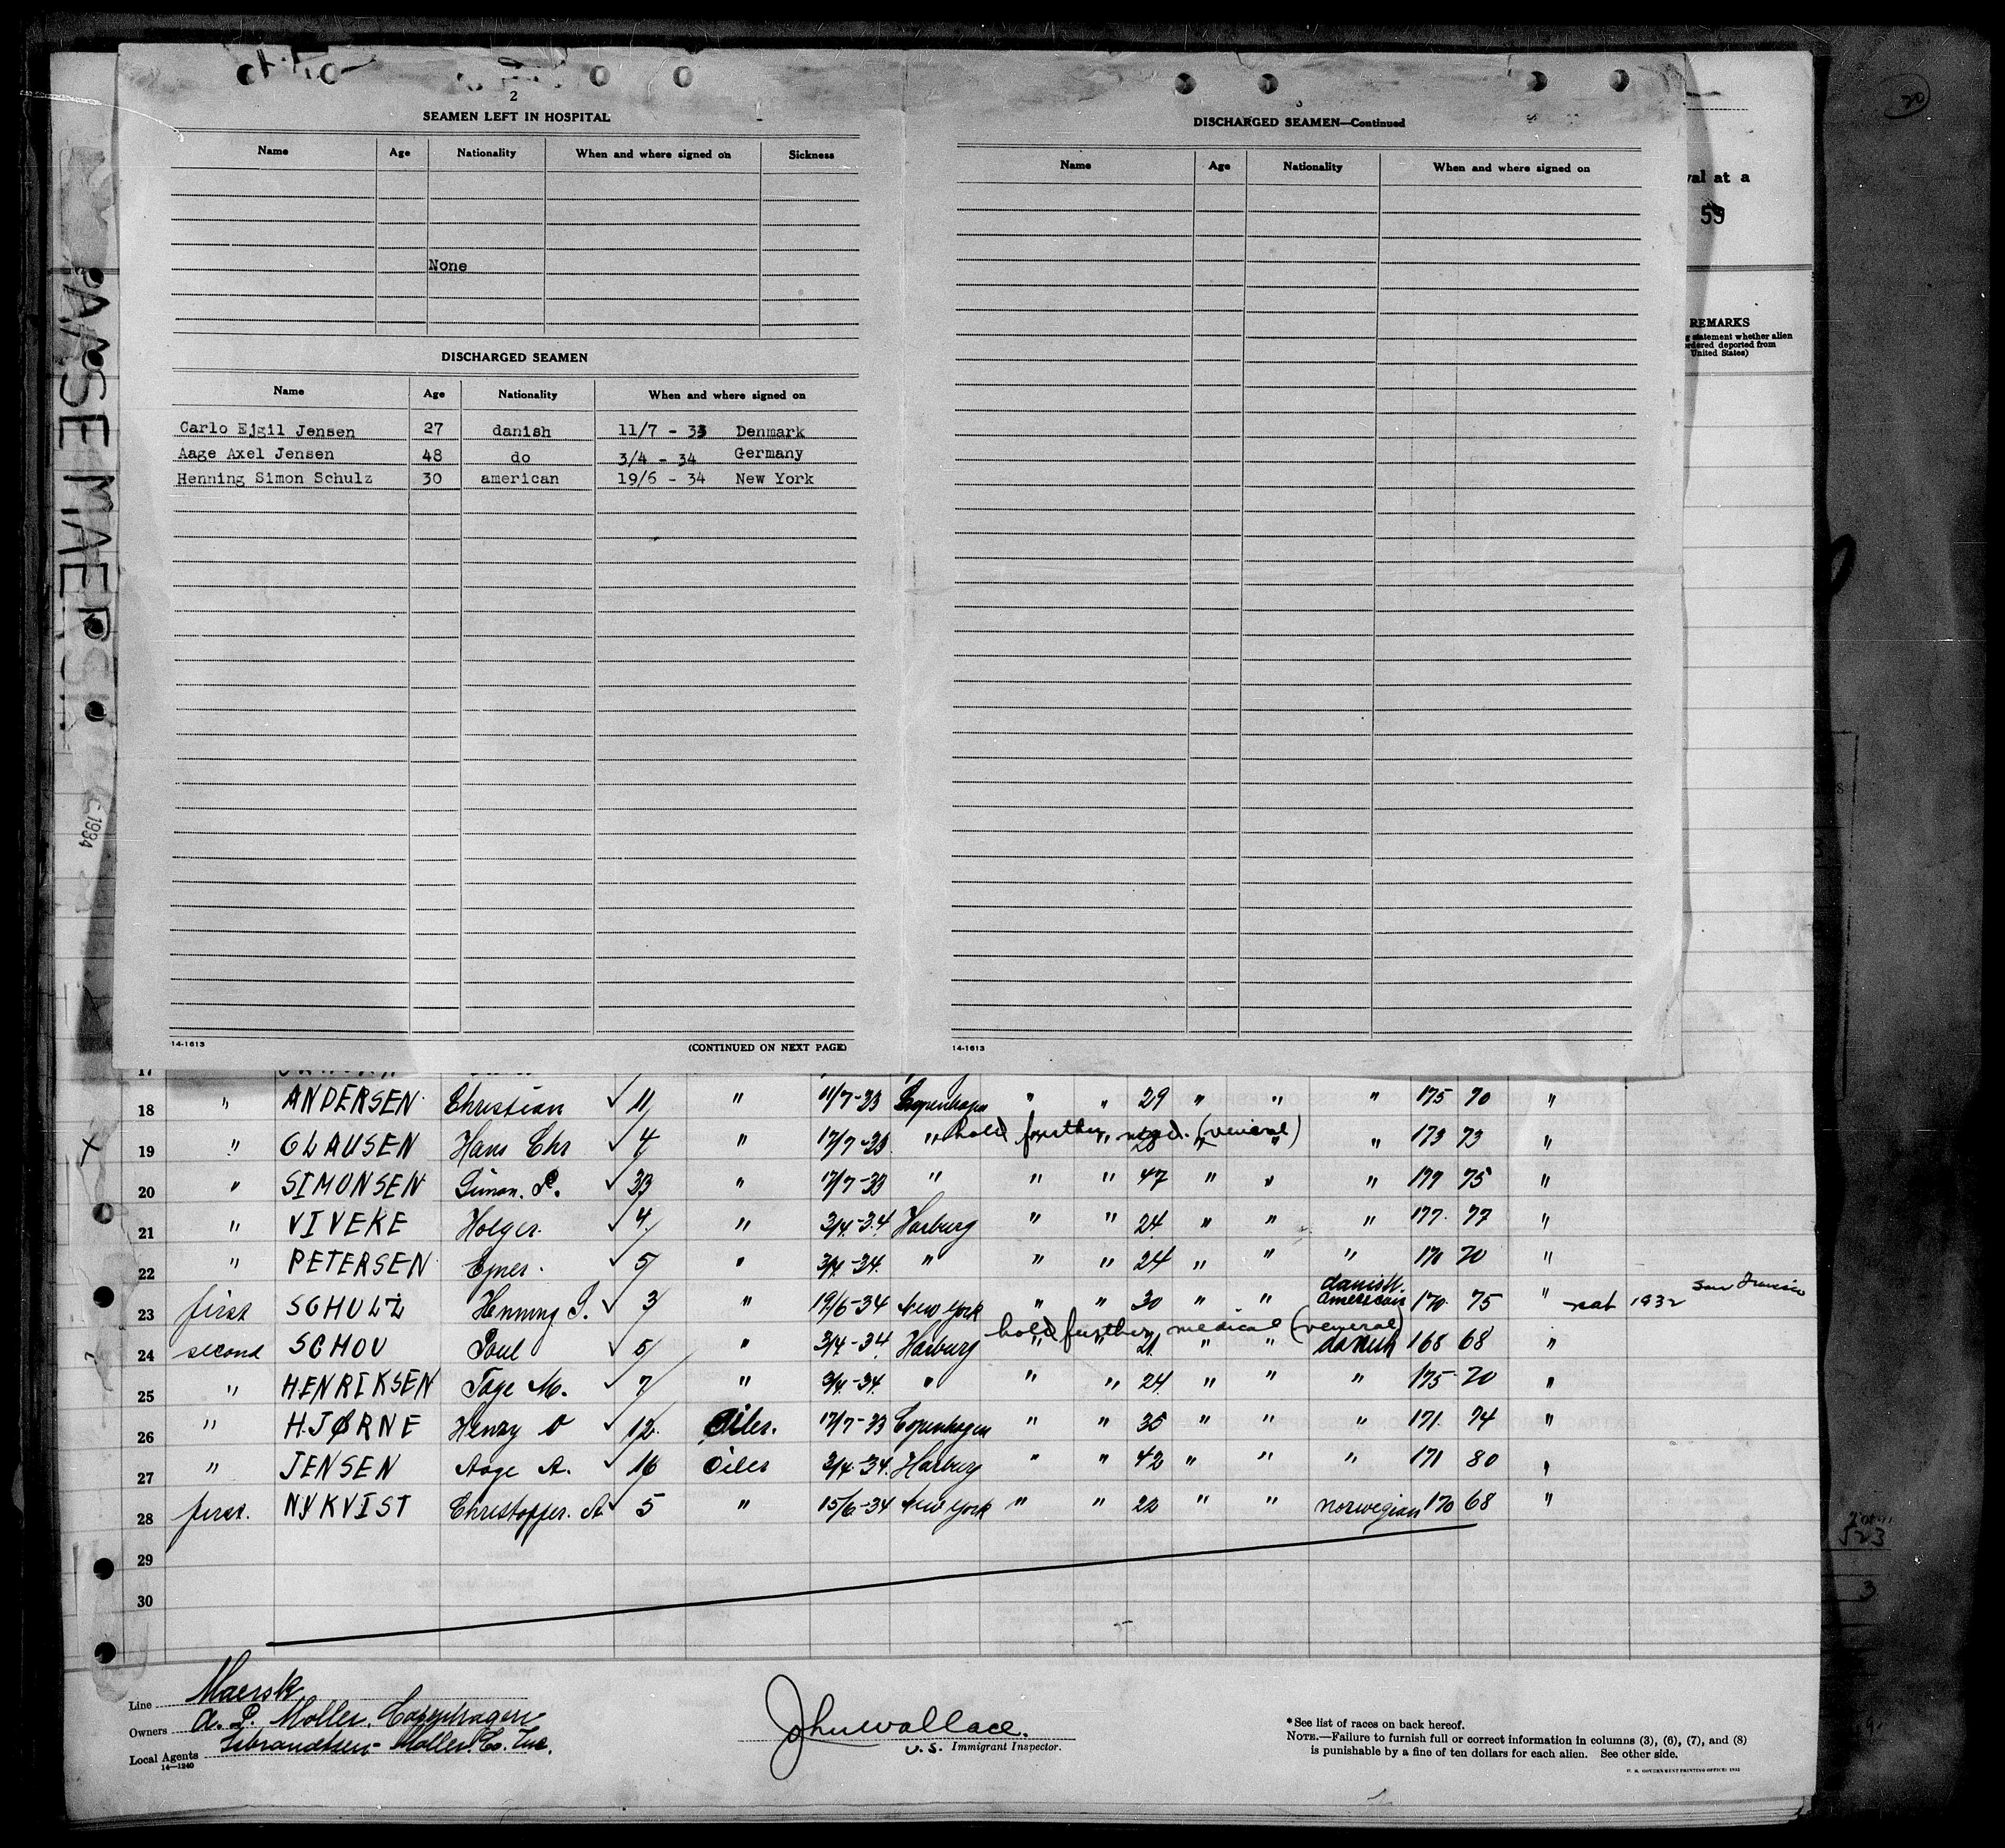 2
SEAMEN LEFT IN HOSPITAL
Name Age Nationality When and where signed on Sickness
None
DISCHARGED SEAMEN
Name Age Nationality When and where signed on
Carlo Ejgil Jensen 27 danish 11/7 - 33 Denmark
Aage Axel Jensen 48 do 3/4 - 34 Germany
Henning Simon Schulz 30 american 19/6 - 34 New York
14-1613 (CONTINUED ON NEXT PAGE)
DISCHARGED SEAMEN—Continued
Name Age Nationality When and where signed on
14-1613
20
val at a
59
REMARKS
statement whether alien
ordered deported from
United States)
1934
17
18 " ANDERSEN Christian √ 11 " 11/7-33 Copenhagen " " 29 " " " 175 70 "
hold further med. (venereal)
X 19 " CLAUSEN Hans Chr √ 4 " 17/7-33 " " " " 173 73 "
20 " SIMONSEN Simon. P. √ 33 " 17/7-33 " " " 47 " " " 179 75 "
21 " VIVEKE Holger. √ 4 " 3/4-34 Harburg " " 24 " " " 177 77 "
22 " PETERSEN Ejner. √ 5 " 3/4-34. " " " 24 " " " 170 70 "
danish
23 first SCHULZ Henning S. √ 3 " 19/6-34 New York " " 30 " " american 170 75 " nat 1932 San Francisco
hold further medical (venereal)
24 second SCHOU Poul √ 5 " 3/4-34. Harburg " " 21 " " danish 168 68 "
25 " HENRIKSEN Tage M. √ 7 " 3/4-34. " " " 24 " " " 175 70 "
26 " HJØRNE Henry O √ 12 Oiler. 17/7-33 Copenhagen " " 35 " " " 171 74 "
27 " JENSEN Aage A. √ 16 Oiler 3/4-34. Harburg " " 42 " " " 171 80 "
28 first. NYKVIST Christoffer. A √ 5 " 15/6-34 New York " " 22 " " norwegian 170 68 "
29
30
523
3
Line Maersk
Owners A. P. Moller. Copenhagen
Local Agents Isbrandtsen-Moller Co. Inc.
14—1240
John Wallace.
U.S. Immigrant Inspector.
*See list of races on back hereof.
NOTE.—Failure to furnish full or correct information in columns (3), (6), (7), and (8)
is punishable by a fine of ten dollars for each alien. See other side.
U. S. GOVERNMENT PRINTING OFFICE: 1932